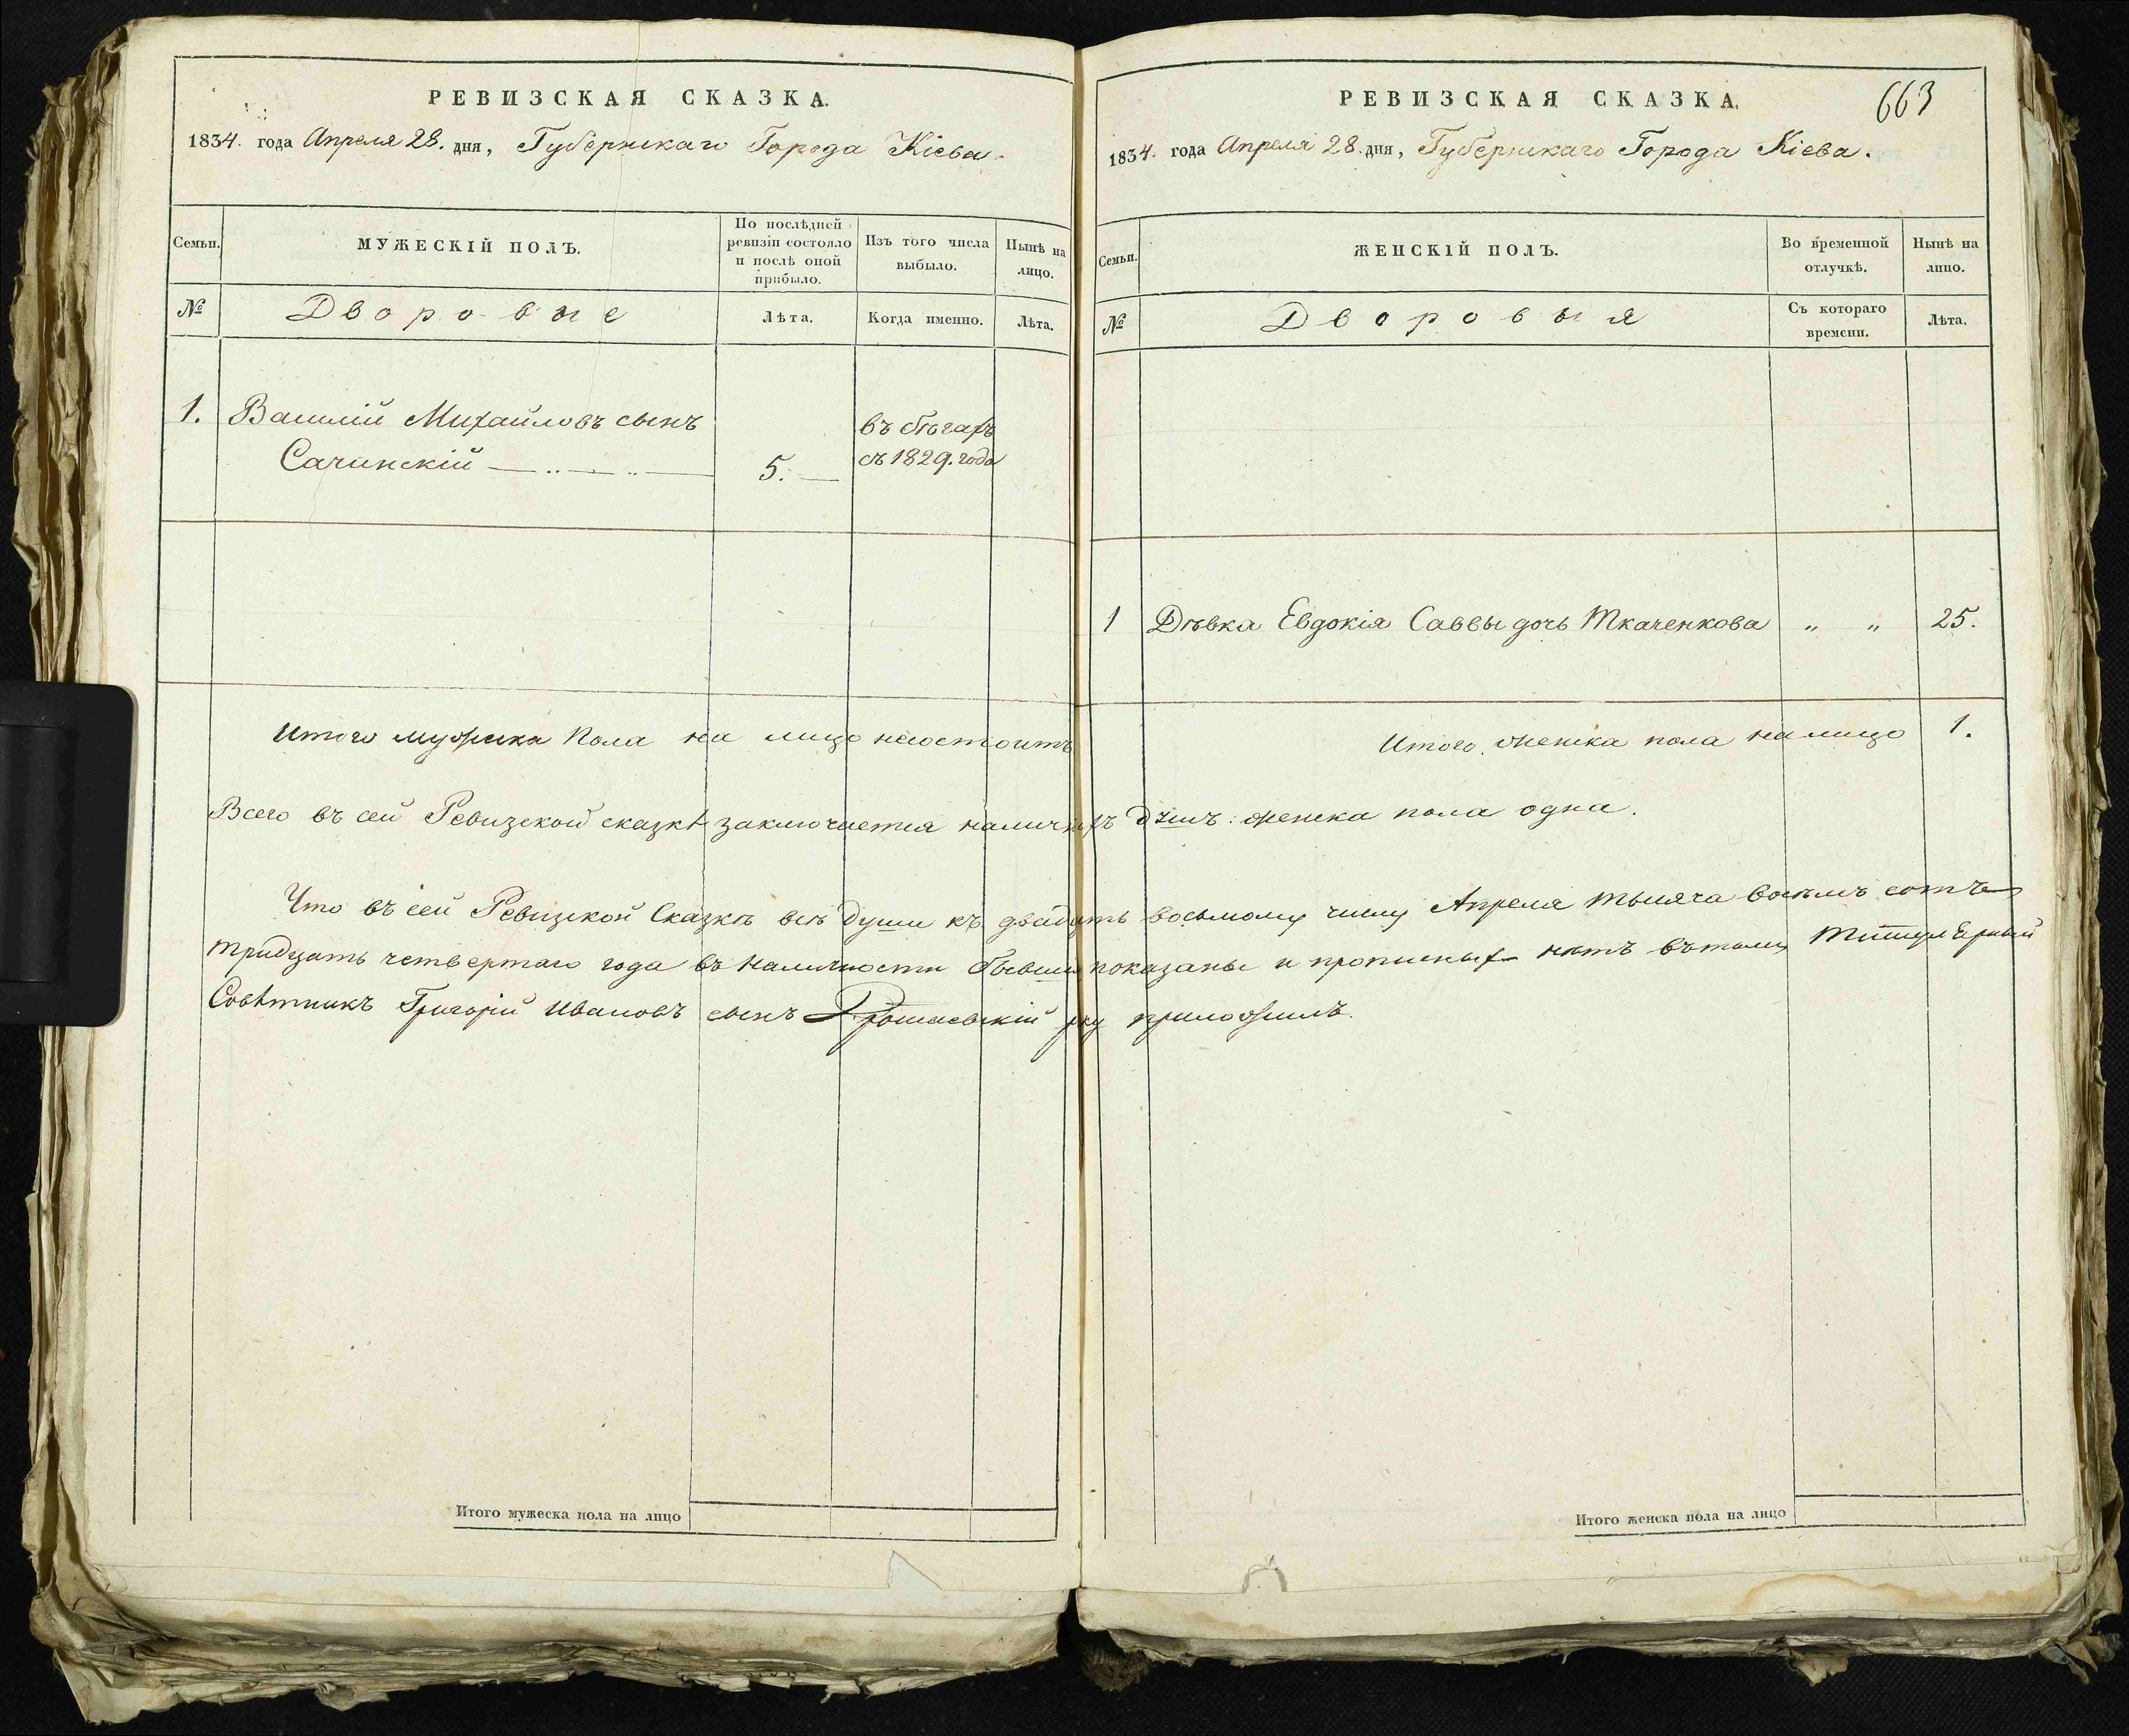 РЕВИЗСКАЯ СКАЗКА.
1834. года Апреля 28. дня, Губернскаго Города Кіева.
Семьи.
МУЖЕСКІЙ ПОЛЪ.
По послѣдней ревизіи состояло и послѣ оной прибыло.
Изъ того числа выбыло.
Нынѣ на лицо.
№
Дворовые
Лѣта.
Когда именно.
Лѣта.
1. Василій Михайловъ сынъ
Сачинскій
5.
въ бѣгахъ
съ 1829. года
Итого мужеска Пола на лицо несостоитъ
Итого мужеска пола на лицо
РЕВИЗСКАЯ СКАЗКА.
663
1834. года Апреля 28. дня, Губернскаго Города Кіева.
Семьи.
ЖЕНСКІЙ ПОЛЪ.
Во временной отлучкѣ.
Нынѣ на лицо.
№
Дворовыя
Съ котораго времени.
Лѣта.
1 Дѣвка Евдокія Саввы дочь Ткаченкова " " 25.
Итого женска пола налицо 1.
Всего въ сей Ревизской сказкѣ заключается наличныхъ душъ: женска пола одна.
Что въ сей Ревизской Сказкѣ всѣ души къ двадцать восьмому числу Апреля тысяча восемь сотъ
тридцать четвертаго года въ наличности бывши показаны и прописныхъ нѣтъ въ томъ Титулярный
Совѣтникъ Григорій Ивановъ сынъ руку приложилъ.
Итого женска пола на лицо